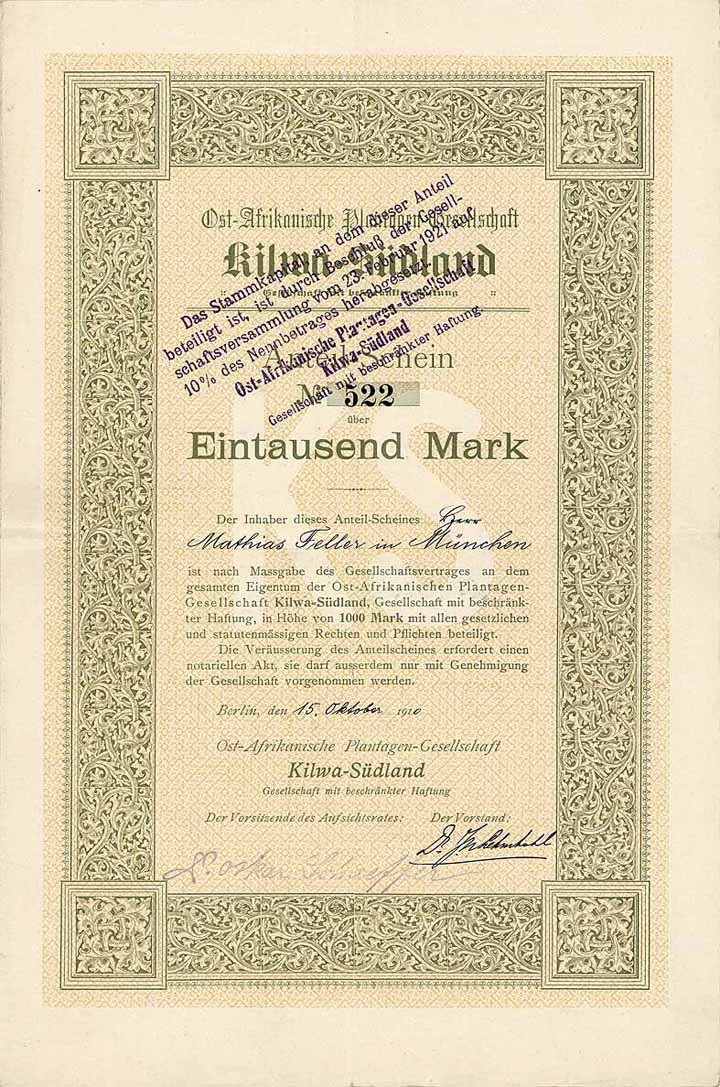 Ost-Afrikanische Plantagen-Gesellschaft
Kilwa-Südland
Gesellschaft mit beschränkter Haftung
Das Stammkapital, an dem dieser Anteil
beteiligt ist, ist durch Beschluß der Gesell-
schaftsversammlung vom 23. Februar 1921 auf
10% des Nennbetrages herabgesetzt.
Ost-Afrikanische Plantagen-Gesellschaft
Kilwa-Südland
Gesellschaft mit beschränkter Haftung.
Anteil-Schein
No 522
über
Eintausend Mark
KS
Der Inhaber dieses Anteil-Scheines Herr
Mathias Feller in München
ist nach Massgabe des Gesellschaftsvertrages an dem
gesamten Eigentum der Ost-Afrikanischen Plantagen-
Gesellschaft Kilwa-Südland, Gesellschaft mit beschränk-
ter Haftung, in Höhe von 1000 Mark mit allen gesetzlichen
und statutenmässigen Rechten und Pflichten beteiligt.
Die Veräusserung des Anteilscheines erfordert einen
notariellen Akt, sie darf ausserdem nur mit Genehmigung
der Gesellschaft vorgenommen werden.
Berlin, den 15. Oktober 1910
Ost-Afrikanische Plantagen-Gesellschaft
Kilwa-Südland
Gesellschaft mit beschränkter Haftung
Der Vorsitzende des Aufsichtsrates: Der Vorstand:
Dr. Oskar